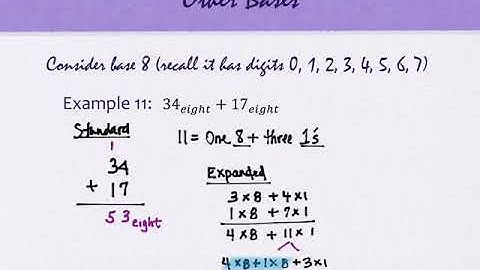 Other Bases
Consider base 8 (recall it has digits 0, 1, 2, 3, 4, 5, 6, 7)
Example 11: 34eight + 17eight
Standard
1
34
+ 17
53eight
11 = One 8 + three 1's
Expanded
3 × 8 + 4 × 1
1 × 8 + 7 × 1
4 × 8 + 11 × 1
4 × 8 + 1 × 8 + 3 × 1